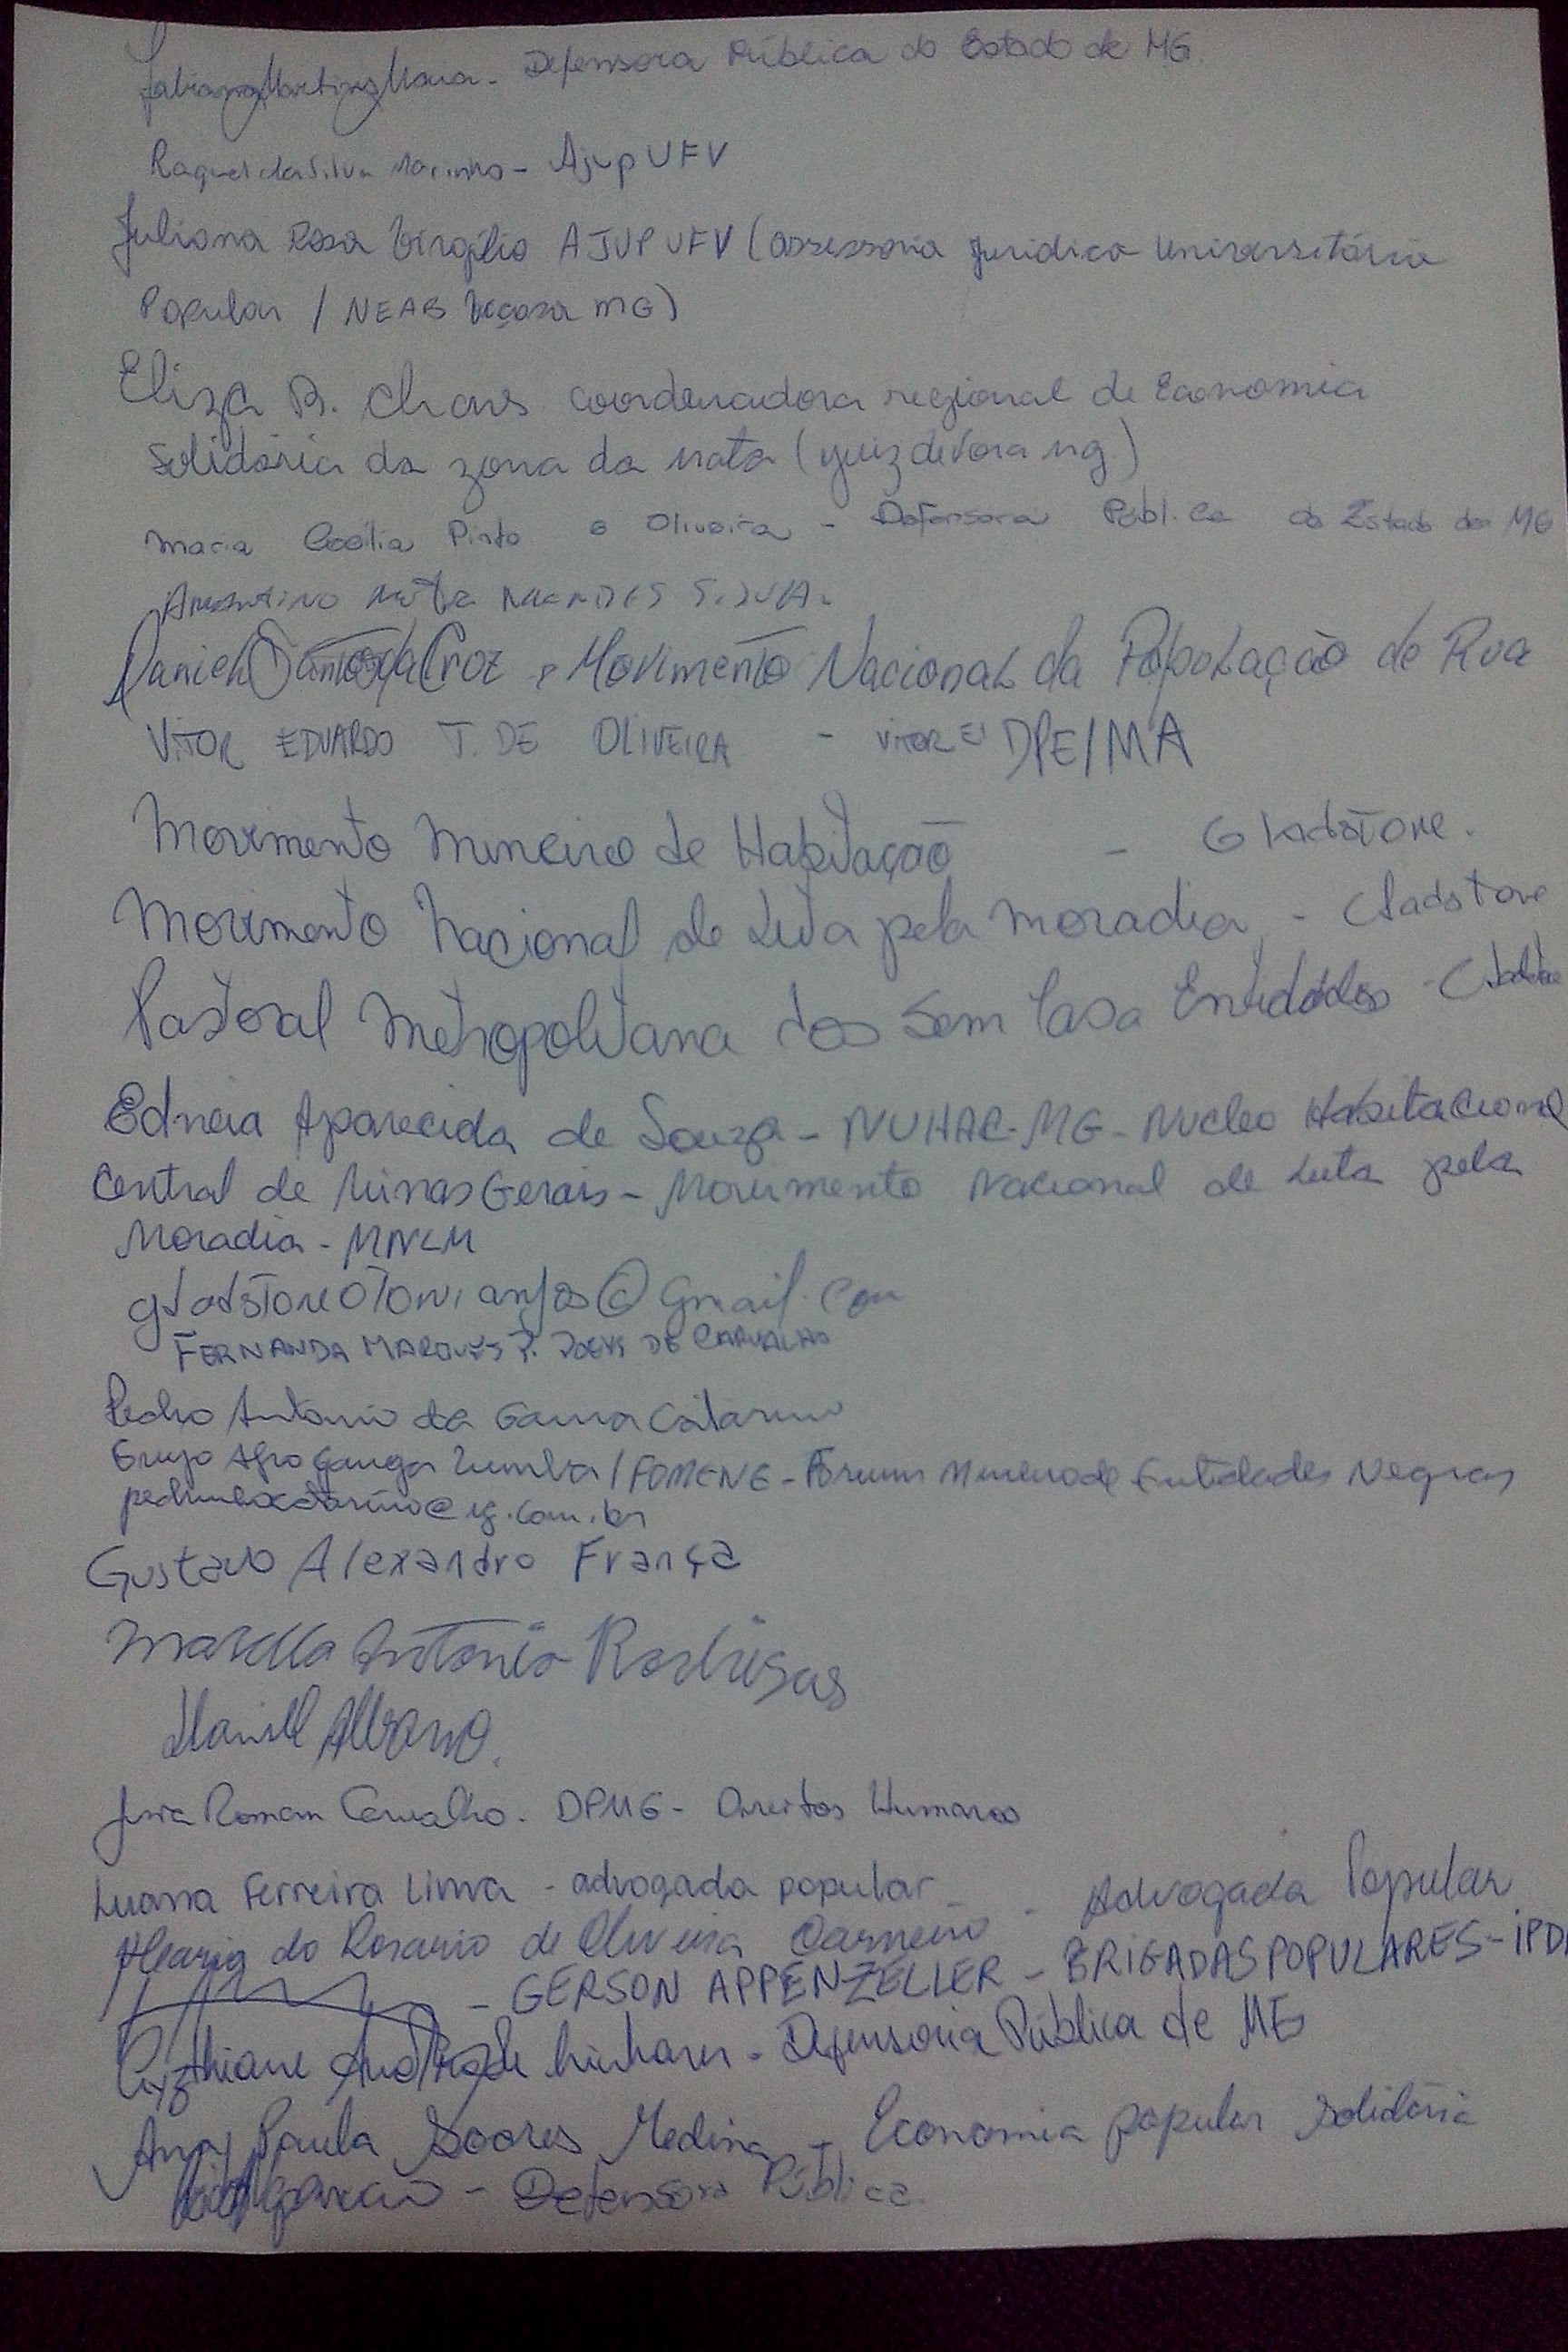 Defensora Pública do Estado de MG.
Raquel da Silva Marinho - Ajup UFV
Juliana Rosa Virgílio AJUP UFV (assessoria Jurídica Universitária
Popular / NEAB Viçosa MG)
Eliza B. Chaves coordenadora regional de Economia
Solidária da zona da mata (juiz de fora mg.)
Maria Cecília Pinto e Oliveira - Defensora Pública do Estado de MG
Daniel Santos da Cruz Movimento Nacional da População de Rua
VITOR EDUARDO T. DE OLIVEIRA - DPE/MA
Movimento Mineiro de Habitação - Gladstone.
Movimento Nacional de Luta pela moradia - Gladstone
Pastoral Metropolitana dos Sem Casa
Edneia Aparecida de Souza - NUHAC-MG - Nucleo Habitacional
Central de Minas Gerais - Movimento Nacional de Luta pela
Moradia - MNLM
gladstoneotoni anjos@gmail.com
FERNANDA MARQUES DE CARVALHO
Pedro Antonio da Gama Catarino
Grupo Afro Ganga Zumba / FOMENE - Fórum Mineiro de Entidades Negras
Gustavo Alexandro França
Antonio Rodrigues
Roman Carvalho. DPMG - Direitos Humanos
Luana Ferreira Lima - advogada popular
do Rosario de Oliveira Carneiro - Advogada Popular
- GERSON APPENZELLER - BRIGADAS POPULARES -
Andrade Linhares - Defensoria Pública de MG
Ana Paula Soares Medina - Economia popular solidária
- Defensora Pública.